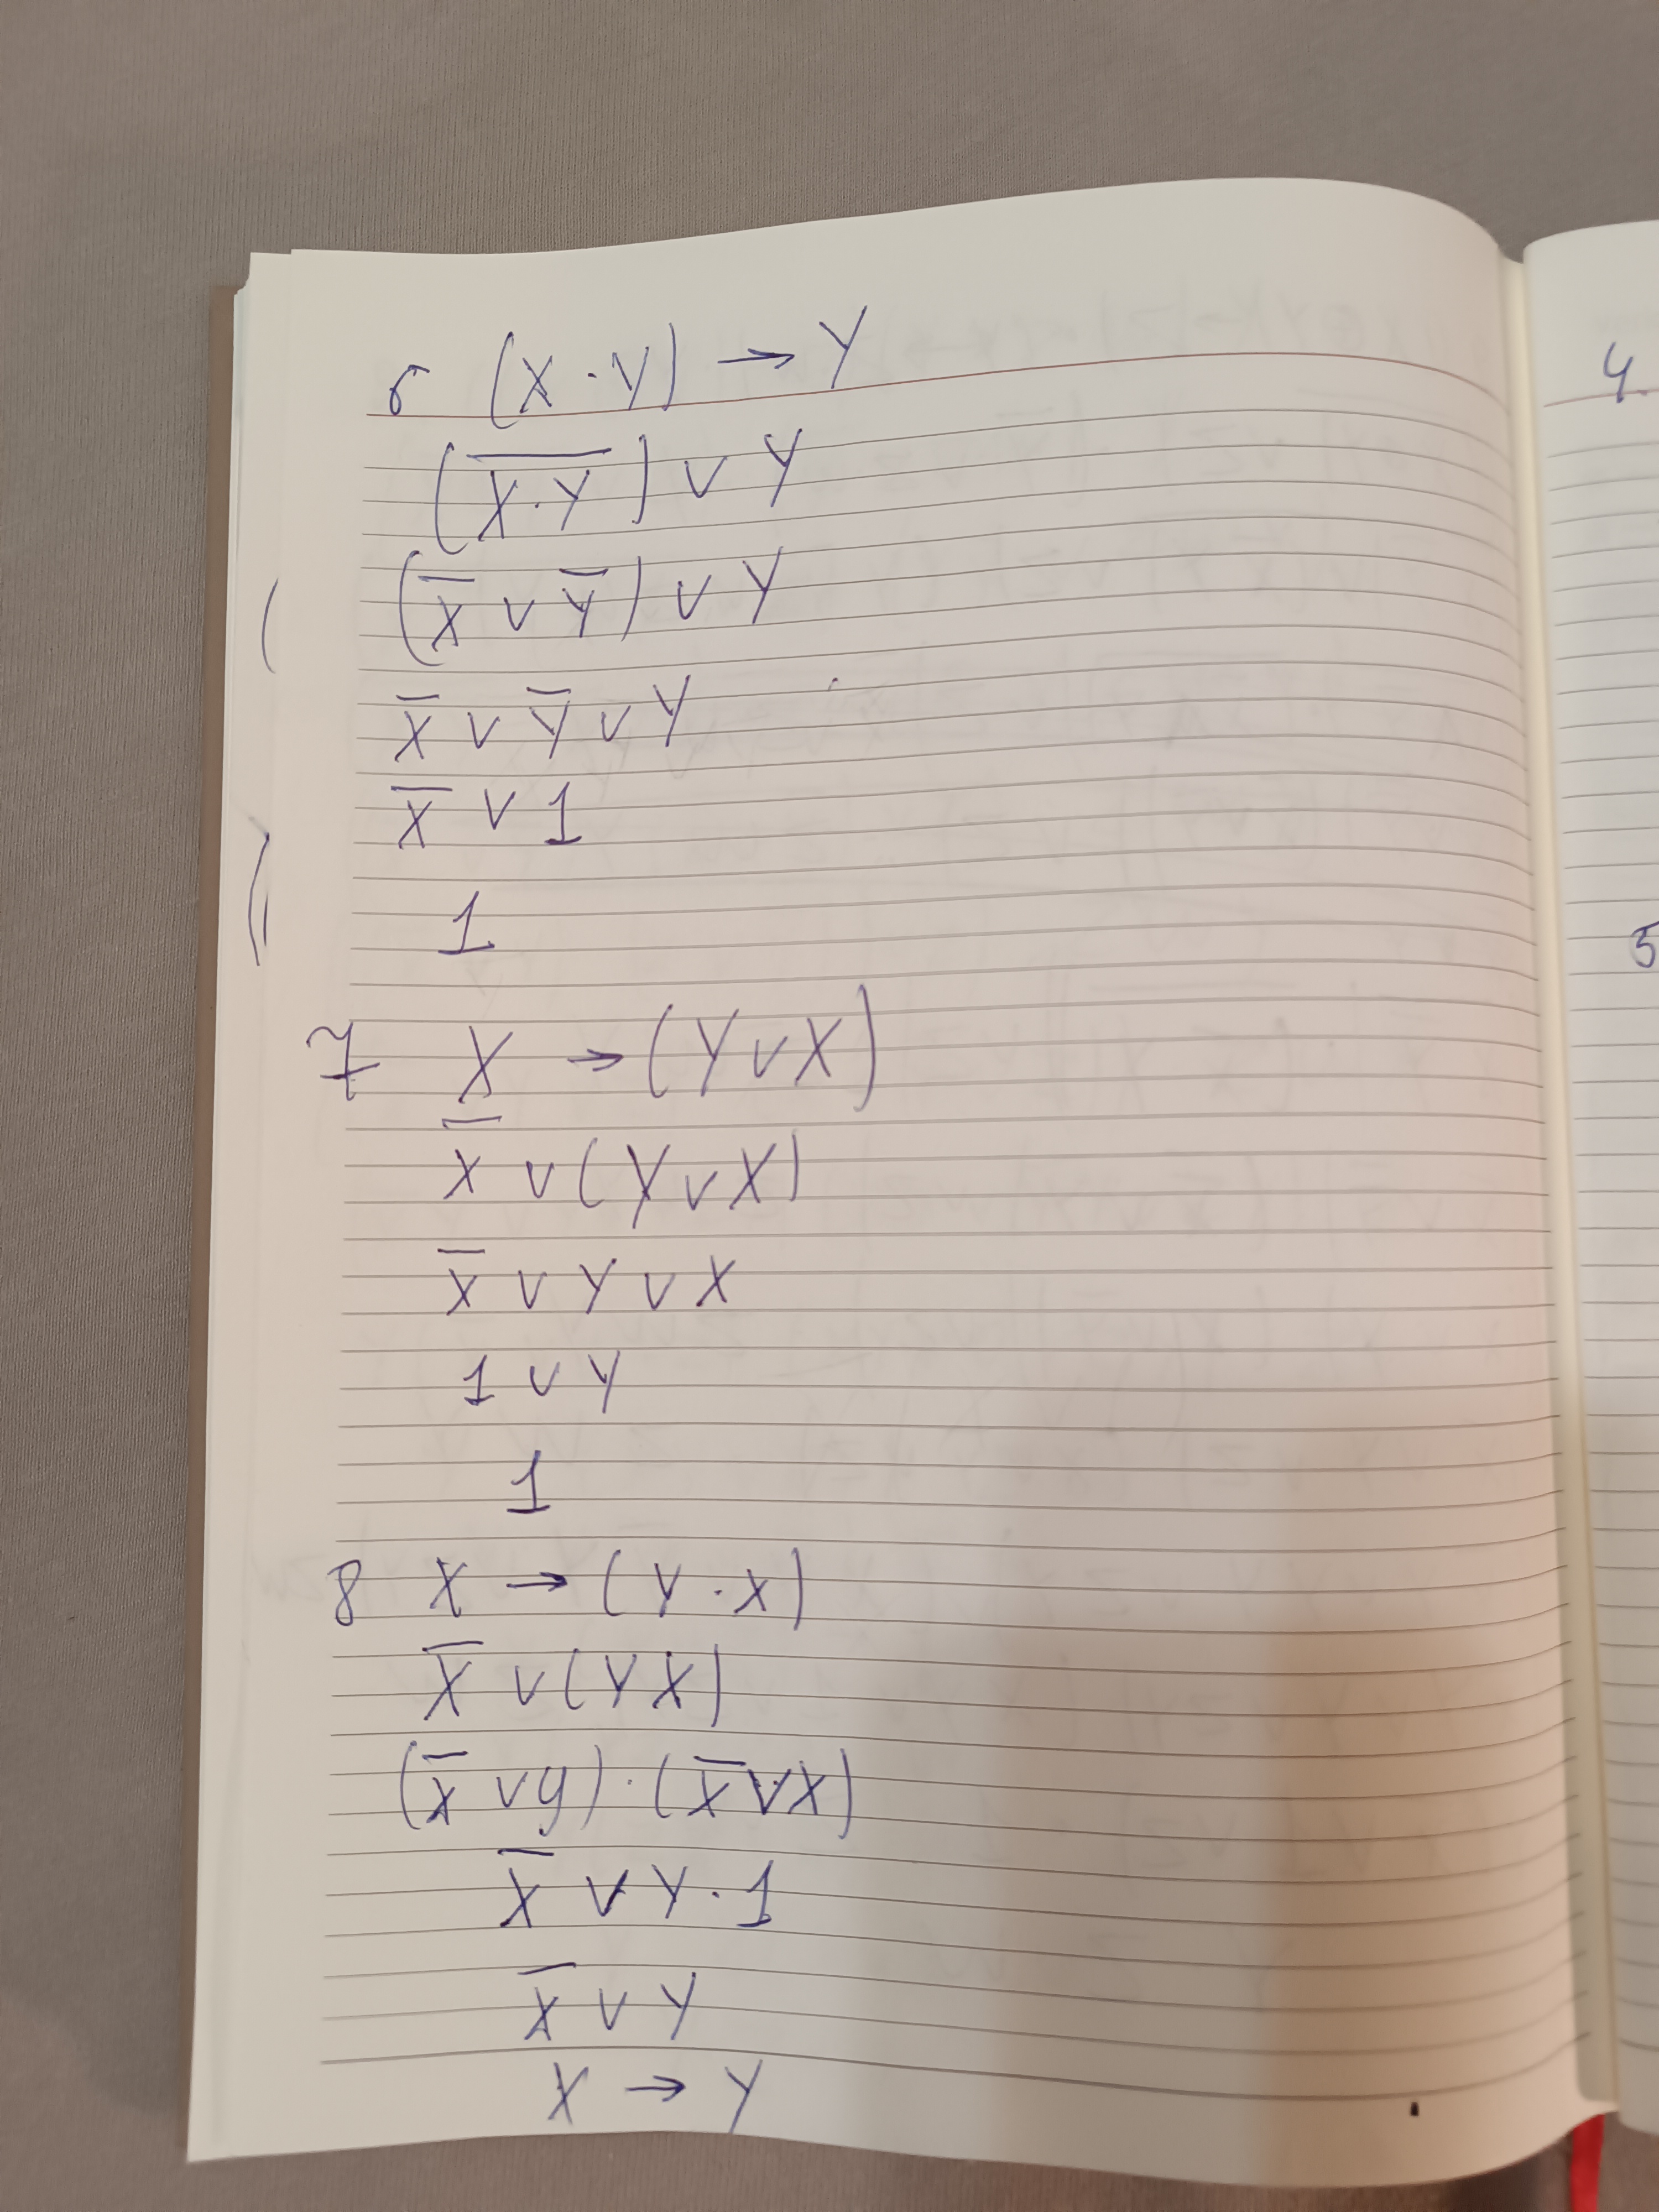 6 (X · Y) → Y
(X̅ ̅·̅ ̅Y̅) ∨ Y
(X̅ ∨ Y̅) ∨ Y
X̅ ∨ Y̅ ∨ Y
X̅ ∨ 1
1
7 X → (Y ∨ X)
X̅ ∨ (Y ∨ X)
X̅ ∨ Y ∨ X
1 ∨ Y
1
8 X → (Y · X)
X̅ ∨ (Y X)
(X̅ ∨ y) · (X̅ ∨ X)
X̅ ∨ Y · 1
X̅ ∨ Y
X → Y
4.
5